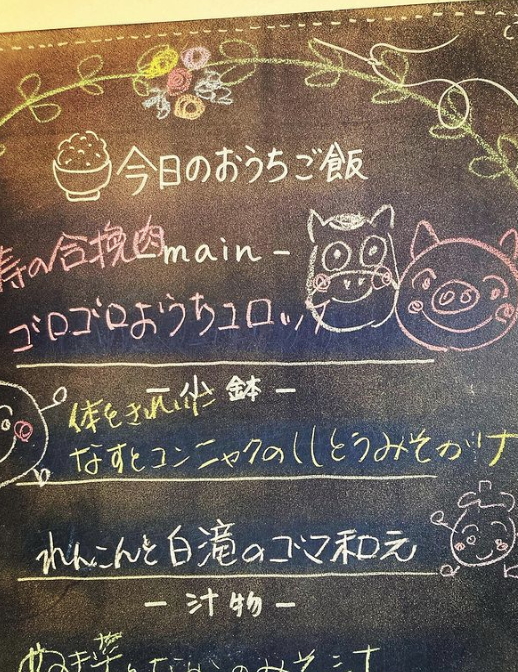 今日のおうちご飯
寿の合挽肉 main -
ゴロゴロおうちコロッケ
- 小鉢 -
体をきれいに
なすとコンニャクのししとうみそがけ
れんこんと白滝のゴマ和え
- 汁物 -
のみそ汁